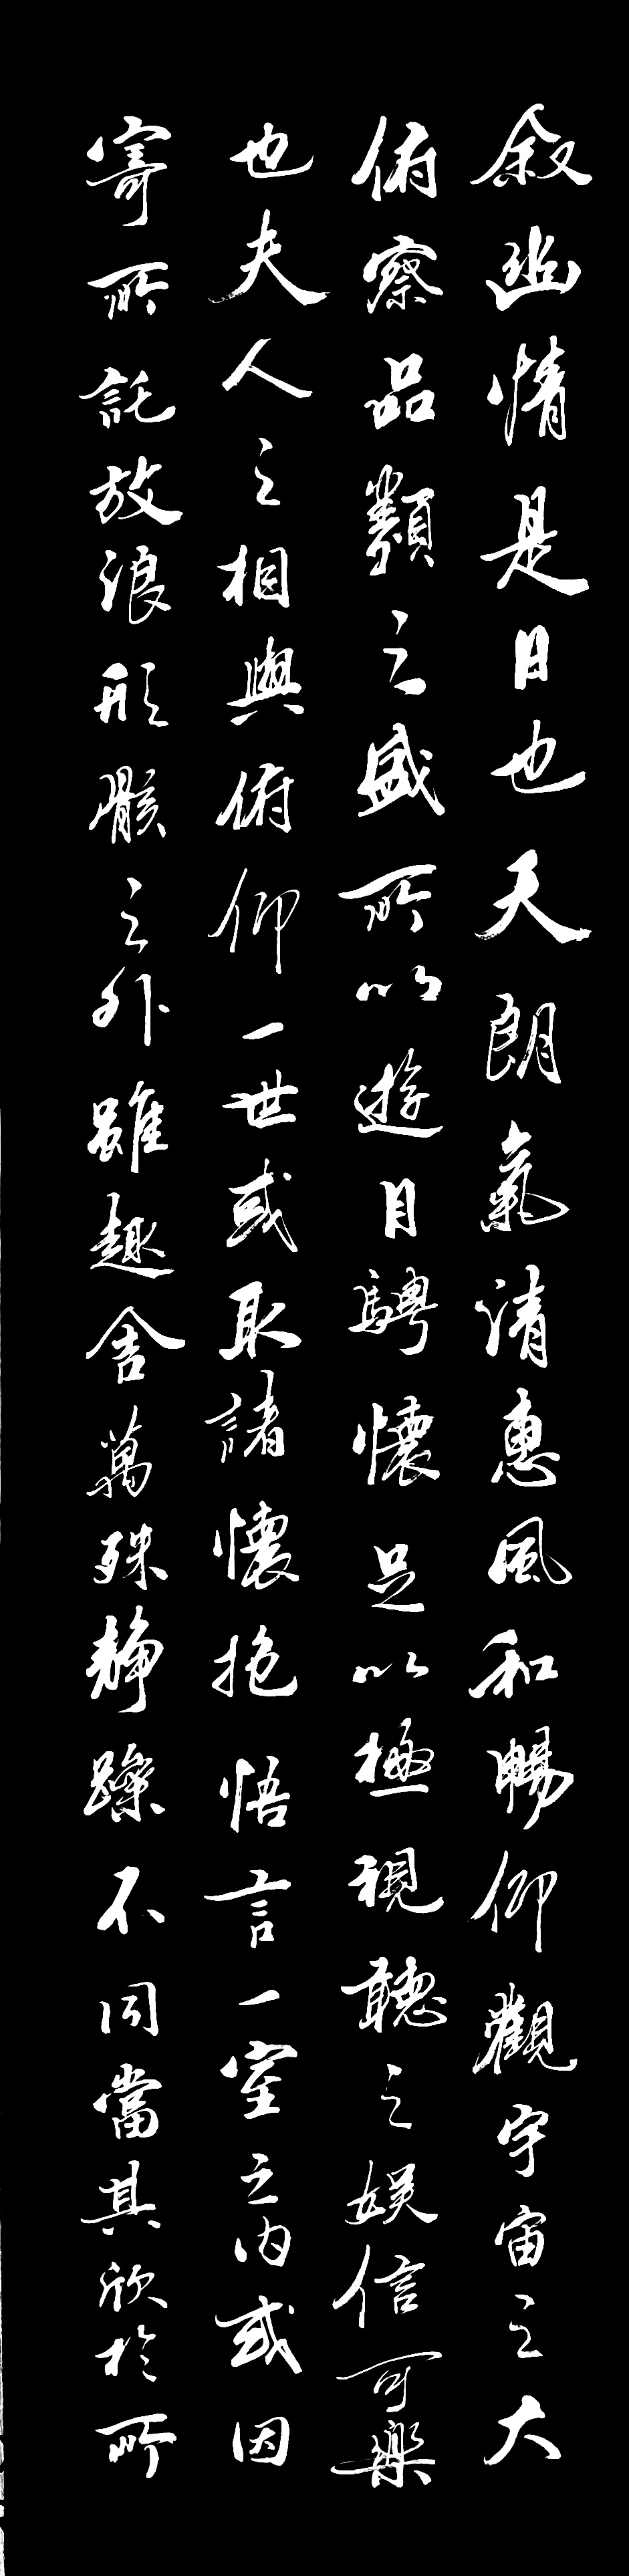 叙幽情是日也天朗氣清惠風和暢仰觀宇宙之大
俯察品類之盛所以遊目騁懷足以極視聽之娱信可樂
也夫人之相與俯仰一世或取諸懷抱悟言一室之内或因
寄所託放浪形骸之外雖趣舍萬殊静躁不同當其欣於所